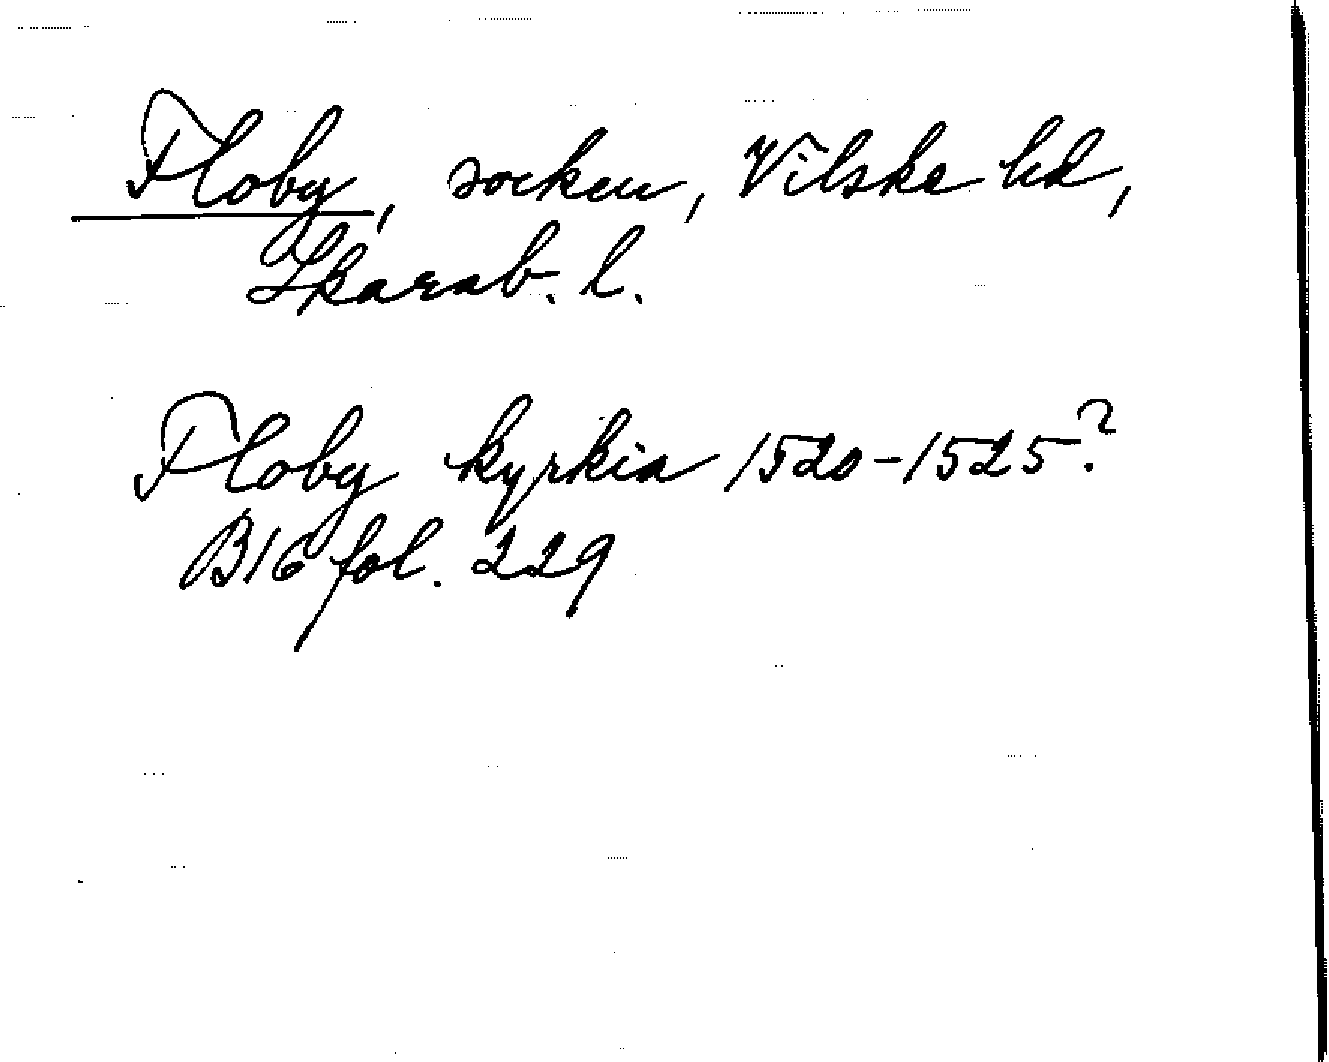 Floby, socken, Vilske hd,
Skarab. l.
Floby kyrkia 1520-1525?
B16 fol. 229